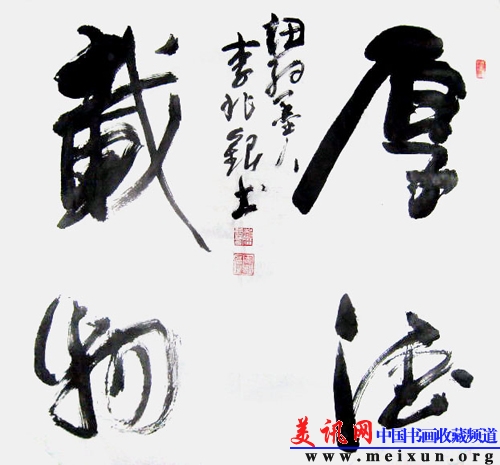 厚德
載物
李兆銀书
美讯网 中国书画收藏频道
www.meixun.org